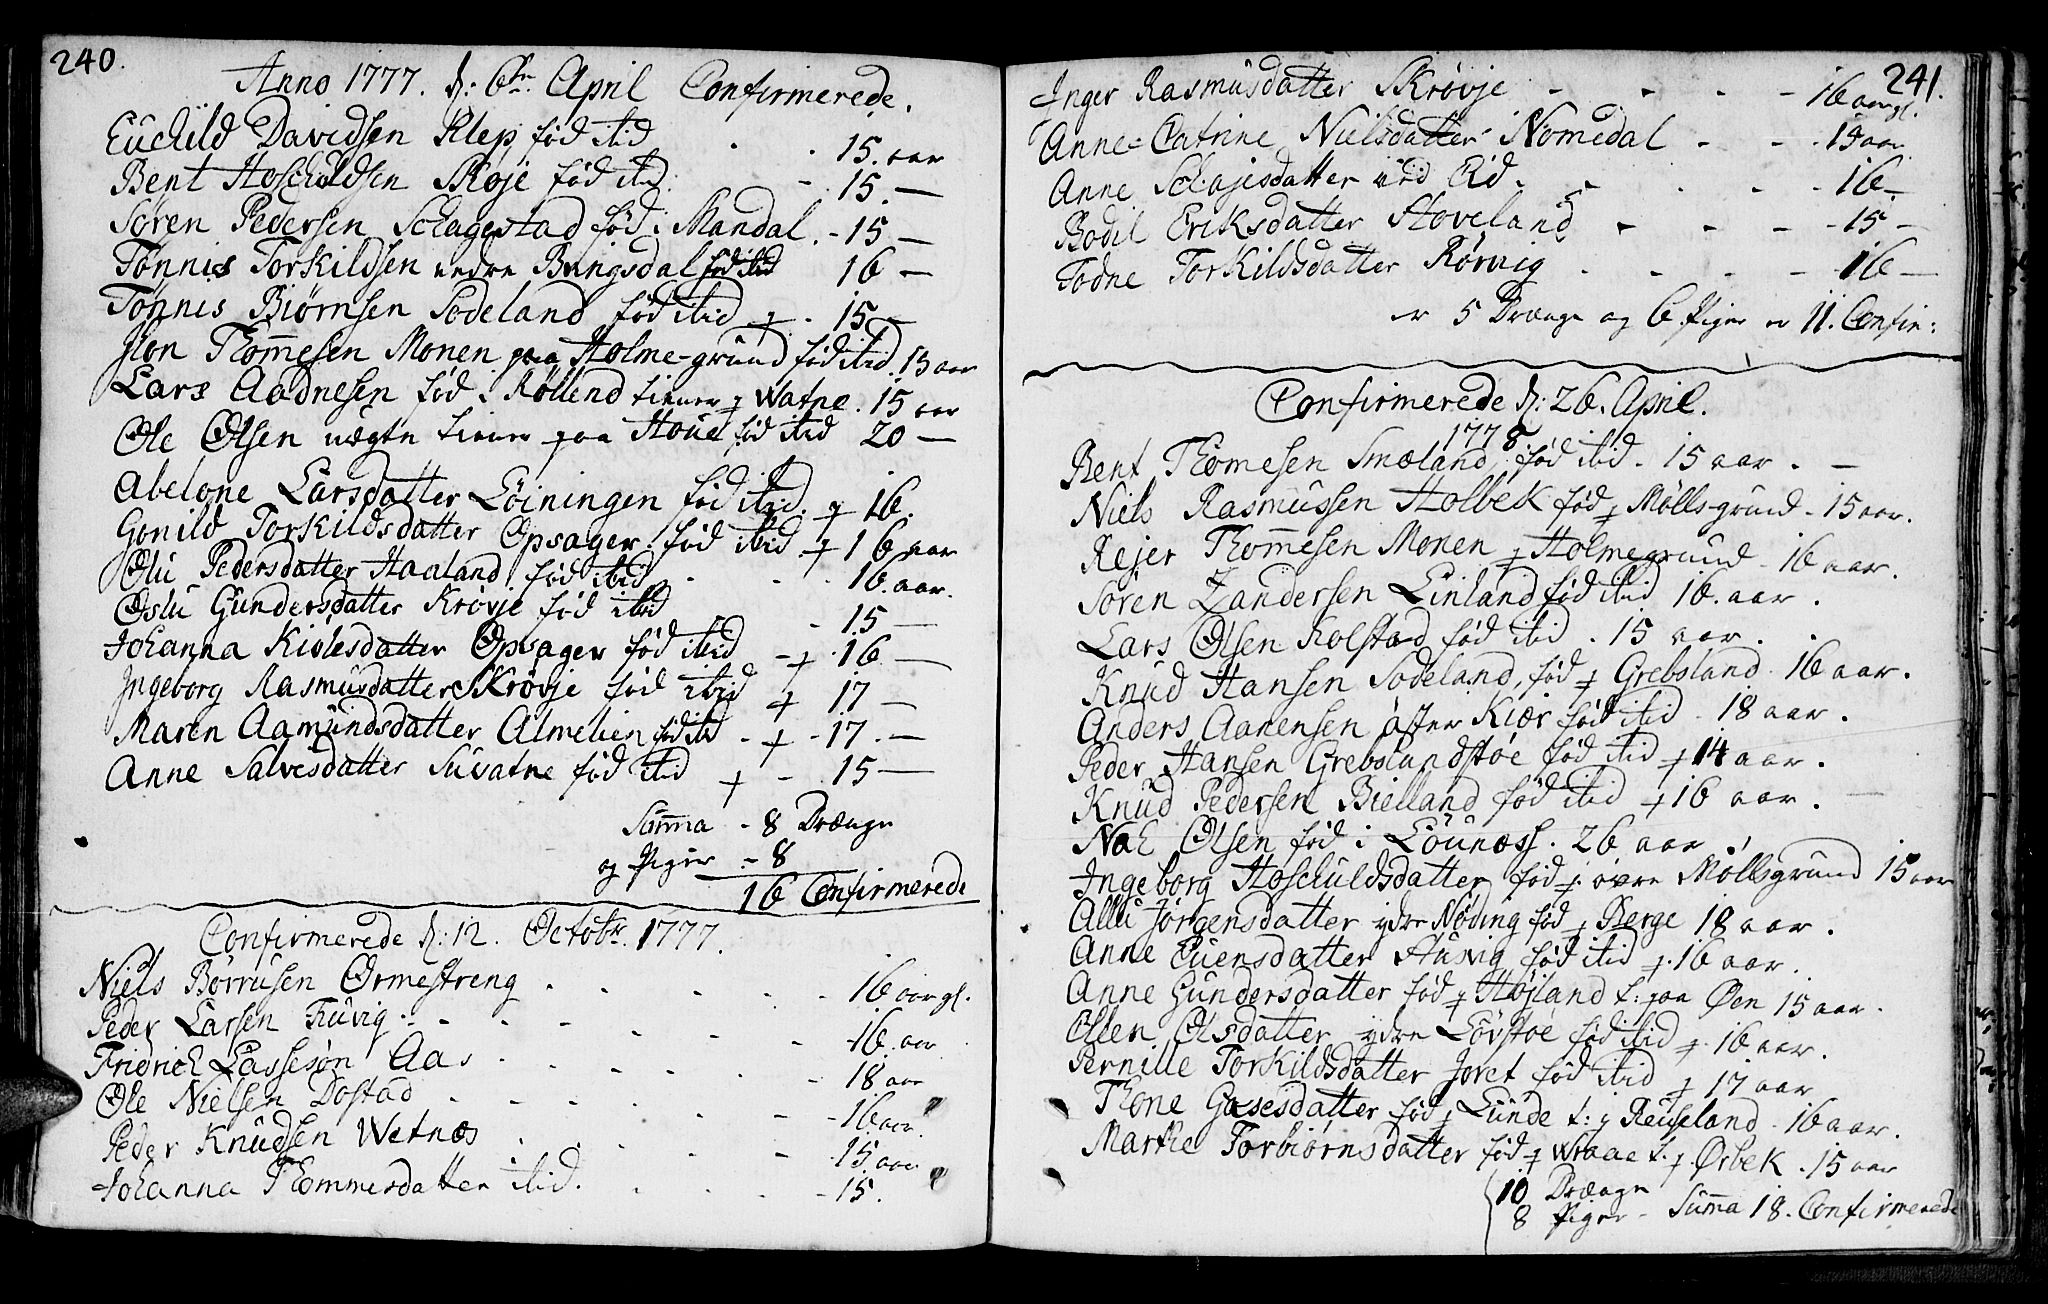 240.
Anno 1777. d: 6te April Confirmerede.
Euchild Davidsen Klep, fød ibid - - 15. aar
Bent Hoschuldsen Skøje fød ibid: - 15. —
Søren Pedersen Schagestad fød i Mandal. - 15 —
Tønnis Torkildsen nedre Bringsdal fød ibid 16 —
Tønnis Biørnsen Sodeland fød ibid 15 —
Jon Thommesen Monen paa Holme-grund fød ibid. 15 aar
Lars Aadnesen fød i Røllend tiener p Watne. 15 aar
Ole Olsen uægte tiener paa Houe fød ibid 20 —
Abelone Larsdatter Løiningen fød ibid. 16.
Gonild Torkildsdatter Opsager fød ibid 16 aar
Oli Pedersdatter Haaland, fød ibid - - 16. aar.
Oslu Gundersdatter Krøvje fød ibid - 15 —
Johanna Kiølesdatter Opsager fød ibid - 16 —
Ingeborg Rasmusdatter Skrøvje fød ibid 17 —
Maren Aamundsdatter Almelien fød ibid - - 17. —
Anne Salvesdatter Suvatne fød ibid - 15 —
Summa - 8 Drænge
og Piger - 8
16 Confirmerede
Confirmerede d: 12. Octobr. 1777.
Niels Børrusen Ormestreng - - - 16 aar gl.
Peder Larsen Tuvig - - - 16. aar
Fridrich Lassesøn Aas - - - 18 aar
Ole Nielsen Dostad - - - 16 aar.
Peder Knudsen Wetnæs - - - 15. aar
Johanna Thommesdatter ibid. - - - 15.
241.
Inger Rasmusdatter Skrøvje - - - - 16 aar gl.
Anne-Catrine Nielsdatter Nomedal - - - 15 aar
Anne Schajesdatter ved Eid. - - - 16 —
Bodil Eriksdatter Stoveland - - - 15 —
Todne Torkildsdatter Rørvig - - - 16 —
er 5 Drænge og 6 Piger er 11. Confir:
Confirmerede d: 26. April.
1778
Bent Thomesen Smæland, fød ibid. 15 aar. —
Niels Rasmussen Holbek fød p Mølls-grund - 15 aar.
Rejer Thommesen Monen p Holmegrund - 16 aar.
Søren Zandersen Linland fød ibid 16. aar.
Lars Olsen Kolstad fød ibid. 15 aar.
Knud Hansen Sodeland, fød p Grebsland - 16 aar.
Anders Aanensen øster Kiær fød ibid - 18 aar.
Peder Hansen Grebslandstøe fød ibid 14 aar.
Knud Pedersen Bielland fød ibid 16 aar.
Noe Olsen fød i Løunæss. 26 aar.
Ingeborg Hoschuldsdatter fød p øvre Møllsgrund 15 aar
Alli Jørgensdatter ydre Nøding fød p Berge 18 aar.
Anne Euensdatter Husvig fød ibid 16 aar.
Anne Gundersdatter fød p Højland t: paa Øen 15 aar.
Ellen Olsdatter ydre Løvstøe fød ibid 16 aar.
Pernille Torkildsdatter Joret fød ibid 17 aar
Thone Gasesdatter fød p Lunde t: p Reuseland - 16 aar.
Marthe Torbiørnsdatter fød p Wraae t: p. Ørbek. 15 aar
10 Drænge
8 Piger - Summa 18. Confirmerede